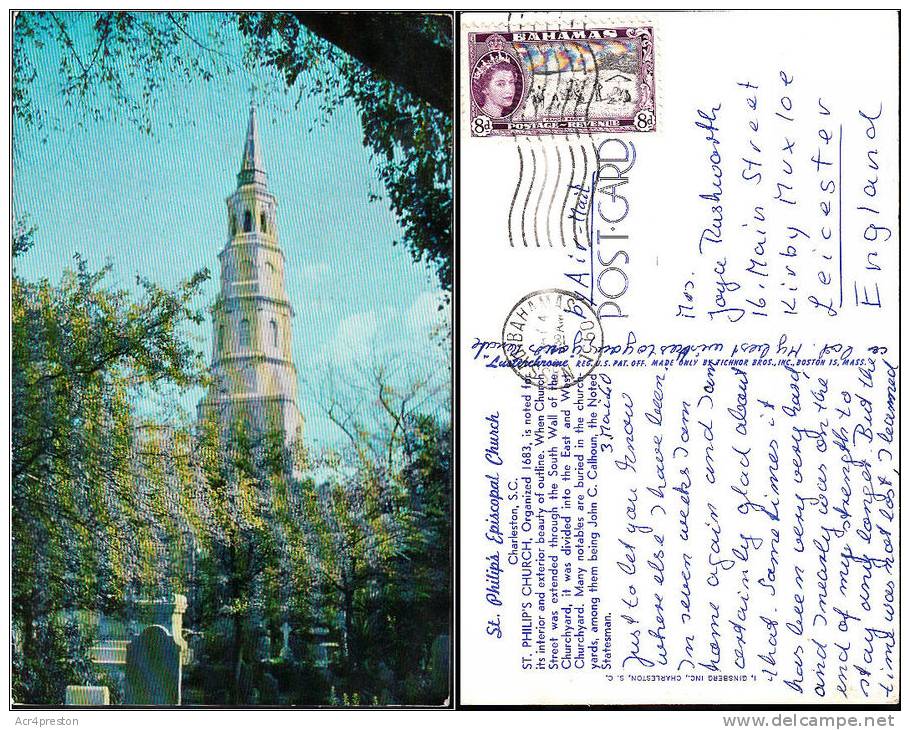 BAHAMAS
8d
8d
POSTAGE-REVENUE
BAHAMAS
60
POST-CARD
By Air-Mail
Mrs.
Joyce Rushworth
16, Main Street
Kirby Muxloe
Leicester
England
"Lusterchrome" REG. U.S. PAT. OFF. MADE ONLY BY TICHNOR BROS., INC., BOSTON 15, MASS.
St. Philip's Episcopal Church
Charleston, S.C.
ST. PHILIP'S CHURCH, Organized 1683, is noted for
its interior and exterior beauty of outline. When Church
Street was extended through the South Wall of the
Churchyard, it was divided into the East and West
Churchyard. Many notables are buried in the church-
yards, among them being John C. Calhoun, the Noted
Statesman.
Just to let you know
where else I have been.
In seven weeks I am
home again and I am
certainly glad about
that. Sometimes it
has been very very hard
and I nearly was on the
end of my strength to
stay any longer. But the
time was not lost, I learned
a lot. My best wishes to you
I. GINSBERG INC., CHARLESTON, S. C.
Acr4preston
www.delcampe.net